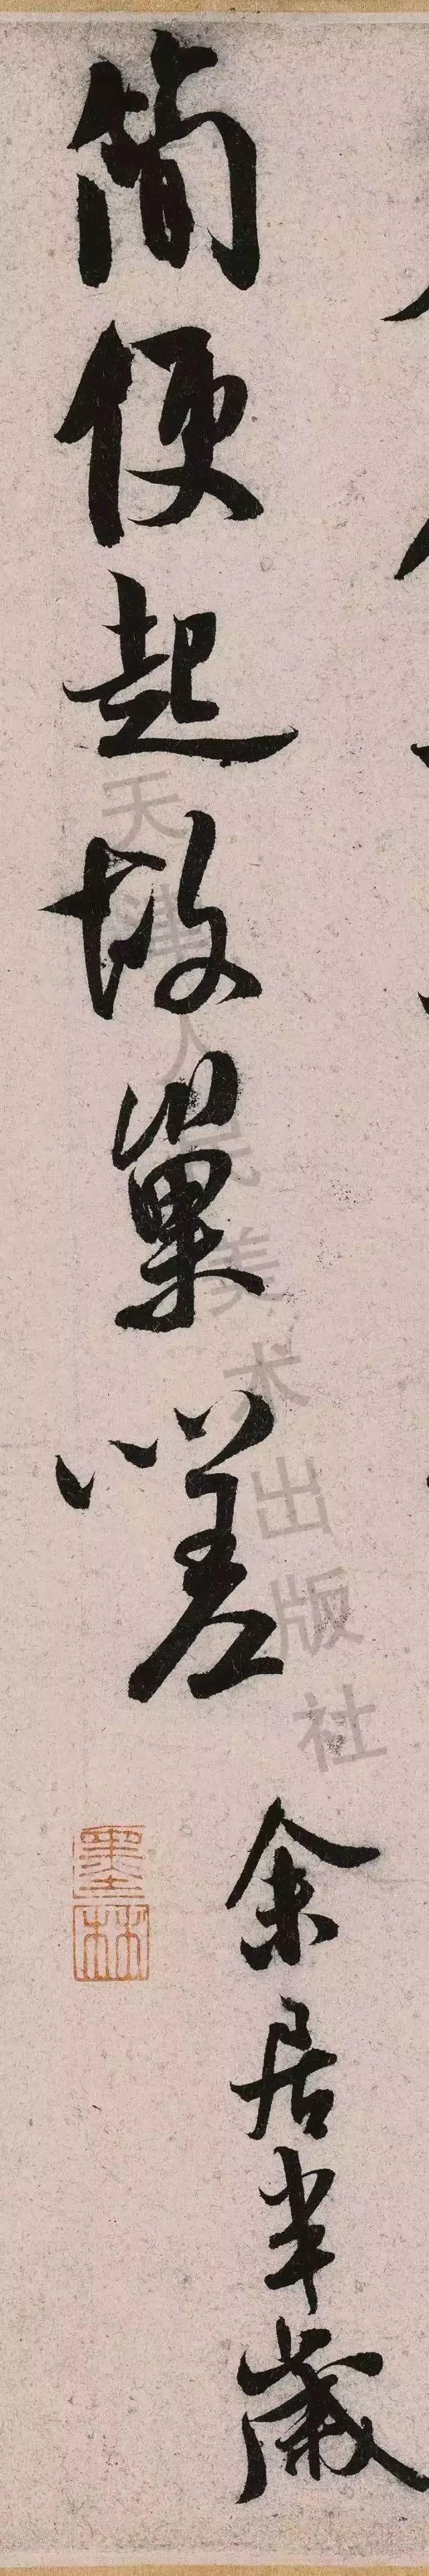 簡便起故巢嗟
余居半歲
墨林
天津人民美术出版社